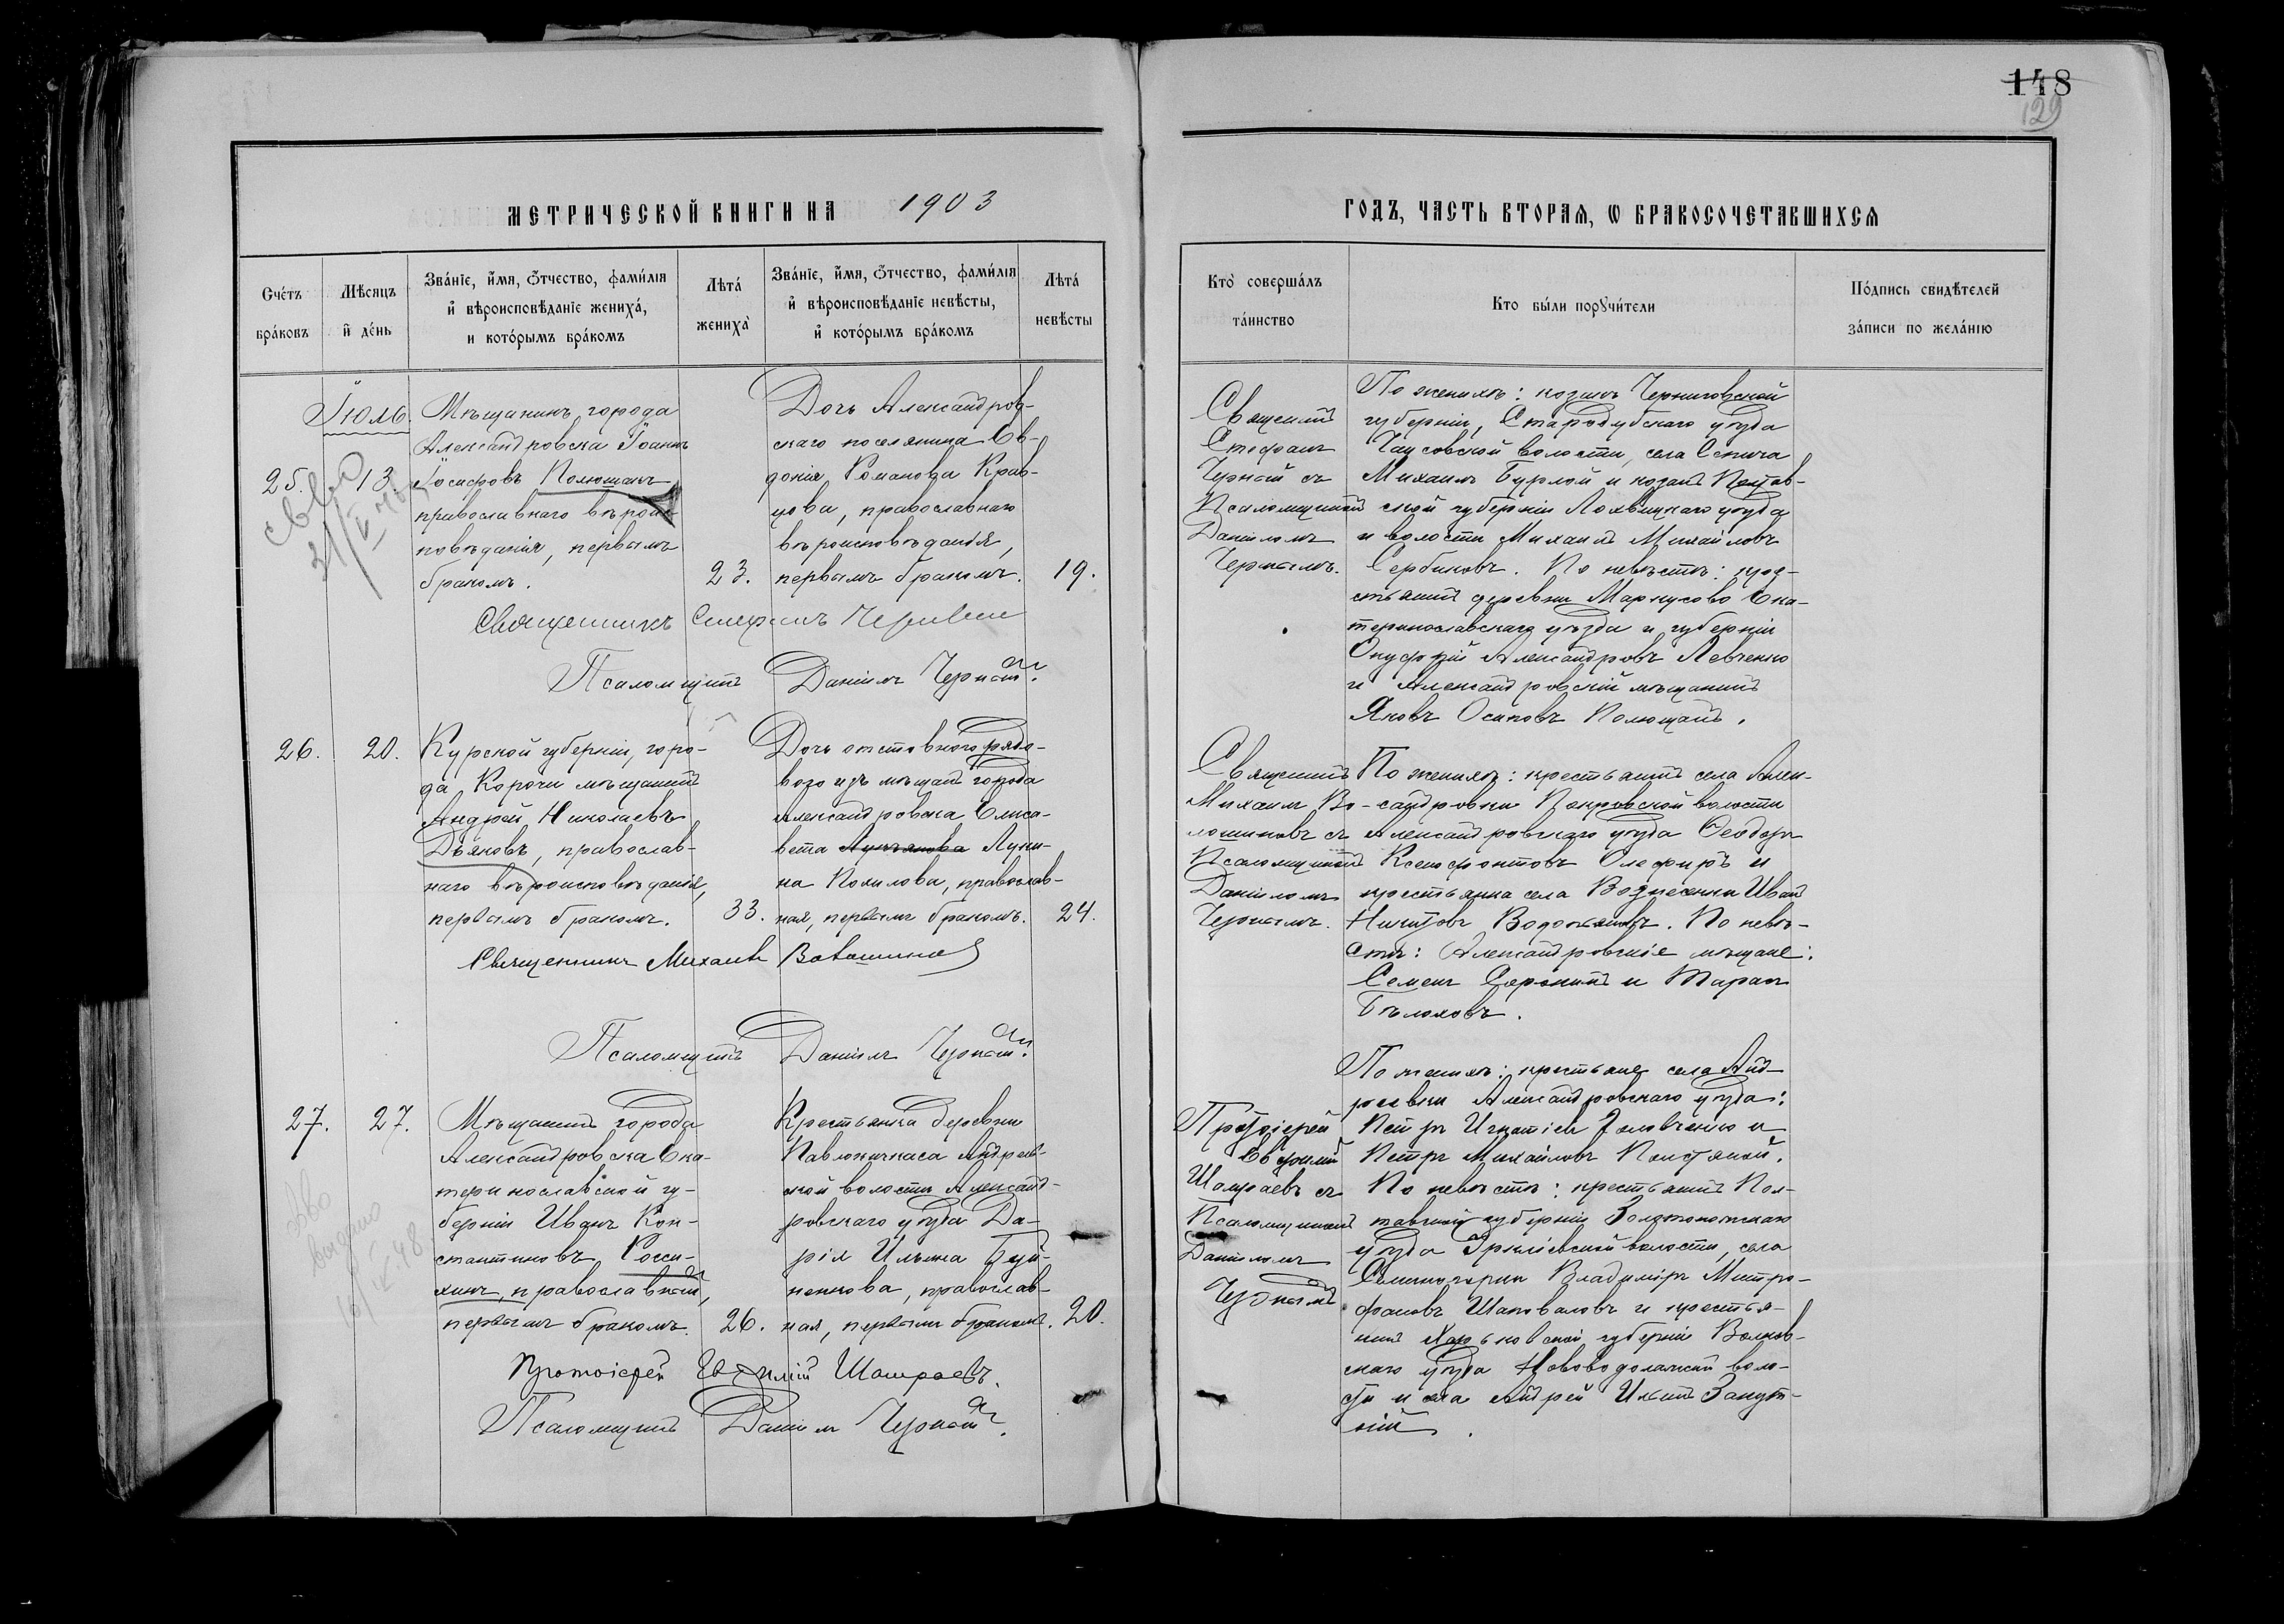 148
129
МЕТРИЧЕСКОЙ КНИГИ НА 1903
ГОДЪ, ЧАСТЬ ВТОРАЯ, Ѡ БРАКОСОЧЕТАВШИХСЯ
Счетъ браковъ
Мѣсяцъ и день
Званіе, имя, отчество, фамилія
и вѣроисповѣданіе жениха,
и которымъ бракомъ
Лѣта
жениха
Званіе, имя, отчество, фамилія
и вѣроисповѣданіе невѣсты,
и которымъ бракомъ
Лѣта
невѣсты
Кто совершалъ
таинство
Кто были поручители
Подпись свидѣтелей
записи по желанію
Іюль.
25.
13.
Мѣщанинъ города
Александровска Іоаннъ
Іосифовъ Полюшанъ
православнаго вѣроис-
повѣданія, первымъ
бракомъ.
23.
Дочь Александров-
скаго поселянина Ев-
докія Романова Крав-
цова, православнаго
вѣроисповѣданія,
первымъ бракомъ.
19.
Священникъ Стефанъ Черный
Псаломщикъ Даніилъ Черный.
Священникъ
Стефанъ
Черный съ
Псаломщикомъ
Даніиломъ
Чернымъ.
По женихѣ: козакъ Черниговской
губерніи, Стародубскаго уѣзда
волости, села
Михаилъ Бурлой и козакъ Полтав-
ской губерніи Лохвицкаго уѣзда
и волости Михаилъ Михайловъ
Сербиновъ. По невѣстѣ: кре-
стьянинъ деревни Маркусово Ека-
теринославскаго уѣзда и губерніи
Онуфрій Александровъ Левченко
и Александровскій мѣщанинъ
Яковъ Осиповъ Полюшанъ.
26.
20.
Курской губерніи, горо-
да Корочи мѣщанинъ
Андрей Николаевъ
Дьяковъ, православ-
наго вѣроисповѣданія,
первымъ бракомъ.
33.
Дочь отставного рядо-
вого изъ мѣщанъ города
Александровска Елиса-
вета Луки-
на Похилова, православ-
ная, первымъ бракомъ.
24.
Священникъ Михаилъ Волошиновъ
Псаломщикъ Даніилъ Черный.
Священникъ
Михаилъ Во-
лошиновъ съ
Псаломщикомъ
Даніиломъ
Чернымъ.
По женихѣ: крестьянинъ села Алек-
сандровки Покровской волости
Александровскаго уѣзда Ѳеодоръ
Ксенофонтовъ Олефиръ и
крестьянинъ села Вознесенки Иванъ
Никитовъ. По невѣ-
стѣ: Александровскіе мѣщане:
Семенъ и Тарасъ
Бѣлоховъ.
27.
27.
Мѣщанинъ города
Александровска Ека-
теринославской гу-
берніи Иванъ Кон-
стантиновъ Росси-
хинъ, православный,
первымъ бракомъ.
26.
Крестьянка деревни
Павлокичкаса Андреев-
ской волости Александ-
ровскаго уѣзда Да-
рія Ильина Буй-
ненкова, православ-
ная, первымъ бракомъ.
20.
Протоіерей Евфимій Шамраевъ.
Псаломщикъ Даніилъ Черный.
Протоіерей
Евфимій
Шамраевъ съ
Псаломщикомъ
Даніиломъ
Чернымъ.
По женихѣ: крестьяне села Анд-
реевки Александровскаго уѣзда:
Петръ Игнатіевъ Головченко и
Петръ Михайловъ.
По невѣстѣ: крестьянинъ Пол-
тавской губерніи Золотоношскаго
уѣзда Ирклѣевской волости, села
Владиміръ Митро-
фановъ Шаповаловъ и крестья-
нинъ Харьковской губерніи Валков-
скаго уѣзда Нововодолажской воло-
сти и села Андрей Ильинъ Закут-
ній.